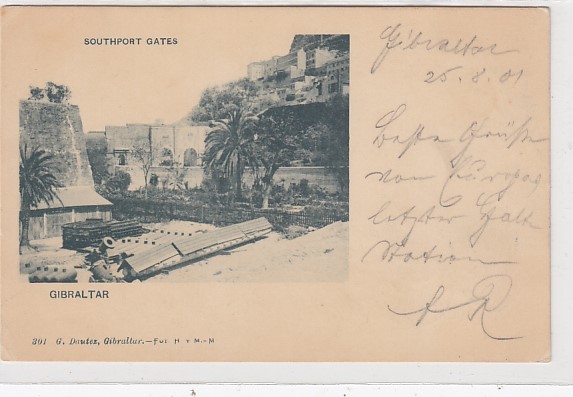 SOUTHPORT GATES
GIBRALTAR
301 G. Dautez, Gibraltar.—Fot. H. v M.-M
Gibraltar
25.8.01
Beste Grüße
von Europas
letzter Halt
station
AR